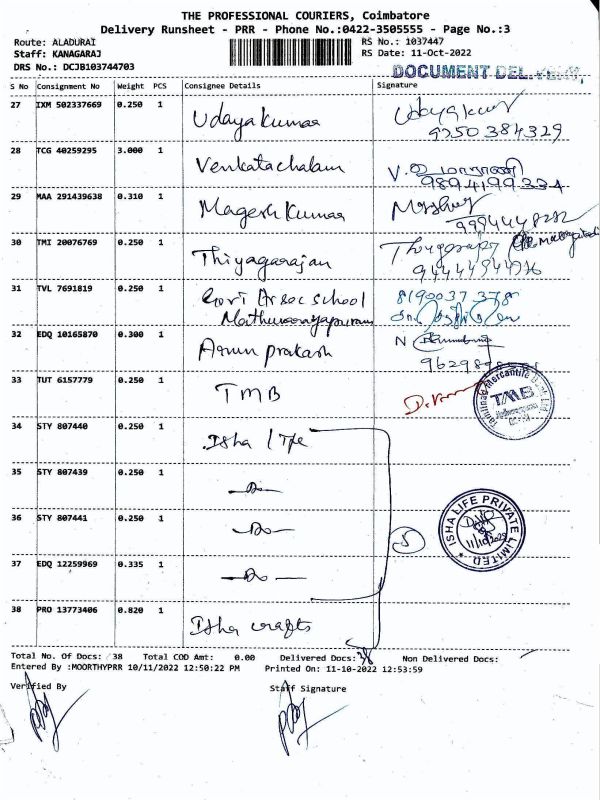 THE PROFESSIONAL COURIERS, Coimbatore
Delivery Runsheet - PRR - Phone No.:0422-3505555 - Page No.:3
Route: ALADURAI
RS No.: 1037447
Staff: KANAGARAJ
RS Date: 11-Oct-2022
DRS No.: DCJB103744703
DOCUMENT
S No Consignment No Weight PCS Consignee Details Signature
27 IXM 502337669 0.250 1 Udaya kumar Udayakumar
9250384329
28 TCG 40259295 3.000 1 Venkatachalam
9894199334
29 MAA 291439638 0.310 1 Magesh Kumar
30 TMI 20076769 0.250 1 Thiyagarajan
31 TVL 7691819 0.250 1 school
32 EDQ 10165870 0.300 1 Arun prakash N
33 TUT 6157779 0.250 1 TMB
Tamilnad Mercantile Bank Ltd
TMB
34 STY 807440 0.250 1 Isha /
35 STY 807439 0.250 1 -Do-
36 STY 807441 0.250 1 -Do-
5
ISHA LIFE PRIVATE LIMITED
37 EDQ 12259969 0.335 1 -Do-
38 PRO 13773406 0.820 1 Isha crafts
Total No. Of Docs: 38 Total COD Amt: 0.00 Delivered Docs: Non Delivered Docs:
Entered By :MOORTHYPRR 10/11/2022 12:50:22 PM Printed On: 11-10-2022 12:53:59
Verified By Staff Signature